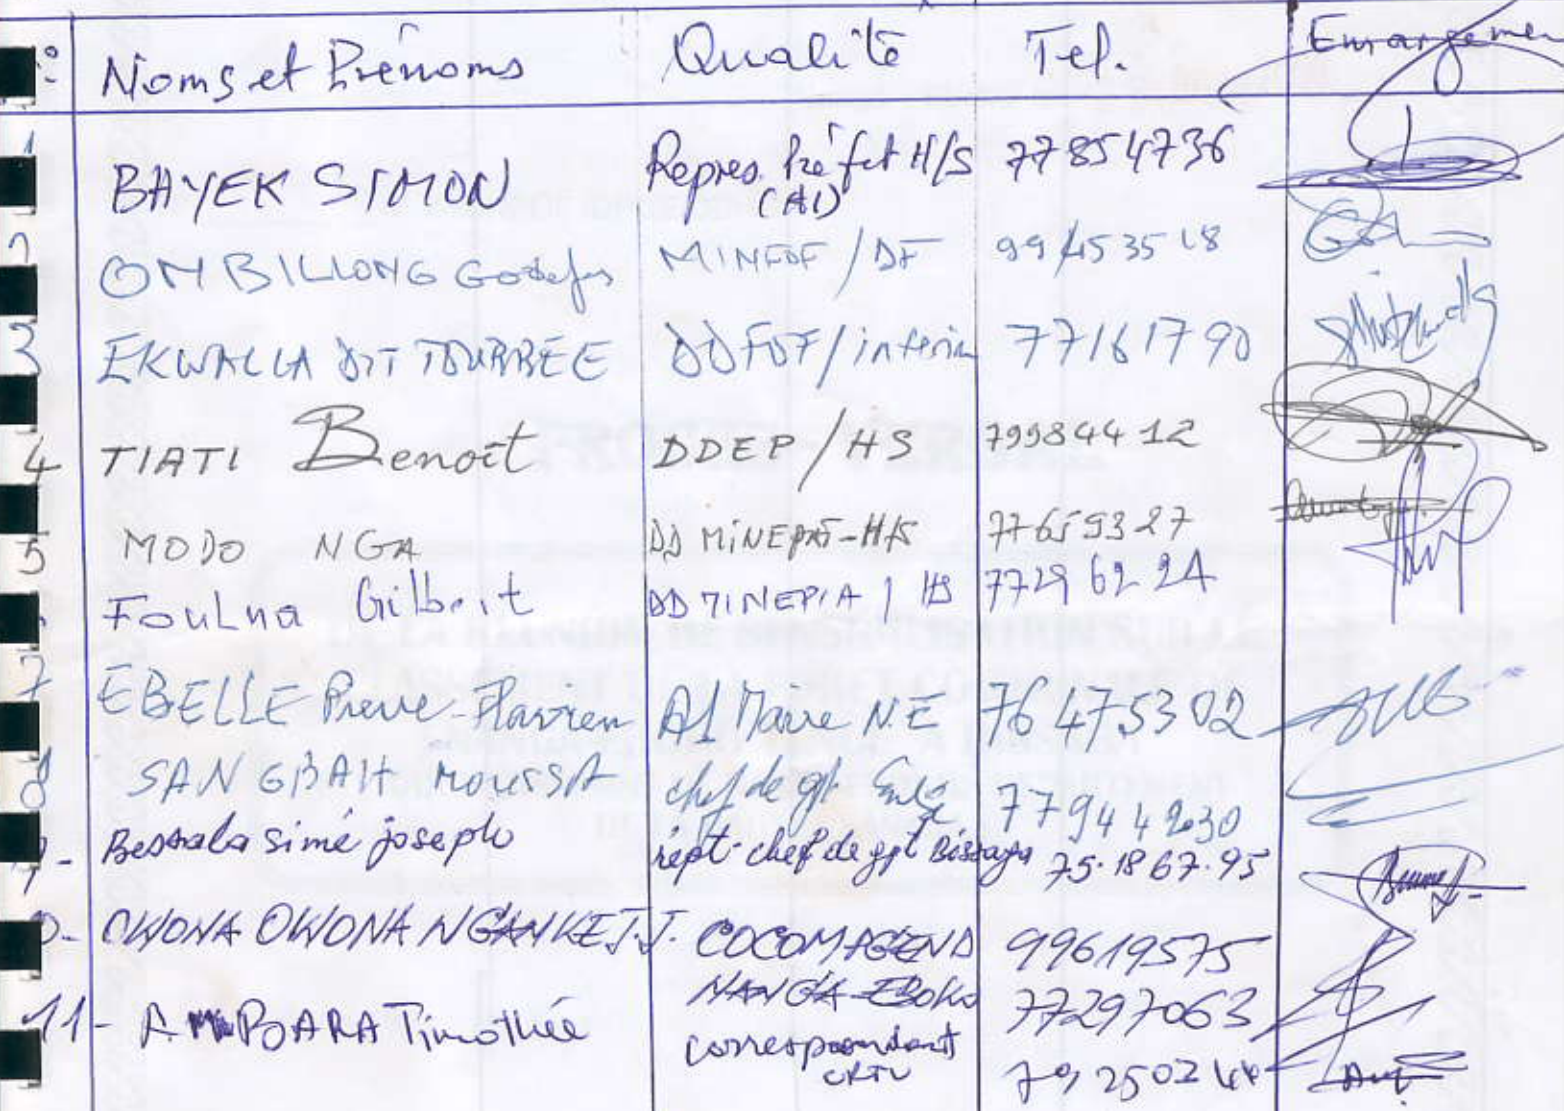 N° Noms et Prénoms Qualité Tel. Emargement
1 BAYEK SIMON Repres. Préfet H/S 77854736
(AI)
2 OMBILLONG MINFOF / DF 99453518
3 EKWALLA DIT TOURREE DDFOF/interim 77161790
4 TIATI Benoît DDEP / HS 79984412
5 MODO NGA DD MINEPAT-H/S 77655327
Foulna Gilbert DD MINEPIA / HS 77296224
7 EBELLE Pierre-Flavien A1 Maire N.E 76475302
8 SANGBAH MOUSSA chef de gpt 779442030
9- Bessala simé joseph rept-chef de gpt 75.18 67.95
10- OWONA OWONA NGANKE J.J. COCOMAGEND 99619575
NANGA-EBOKO 77297063
11- AMBOARA Timothée correspondant
CRTV 79250244